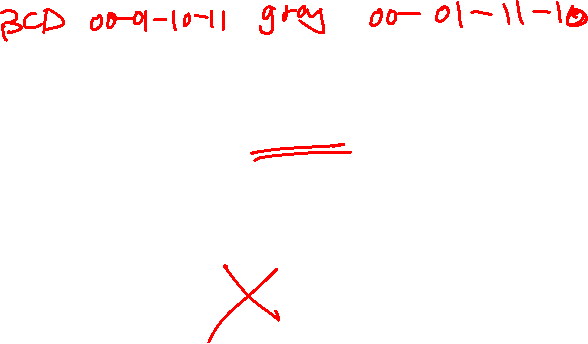 BCD 00-01-10-11 gray 00-01-11-10